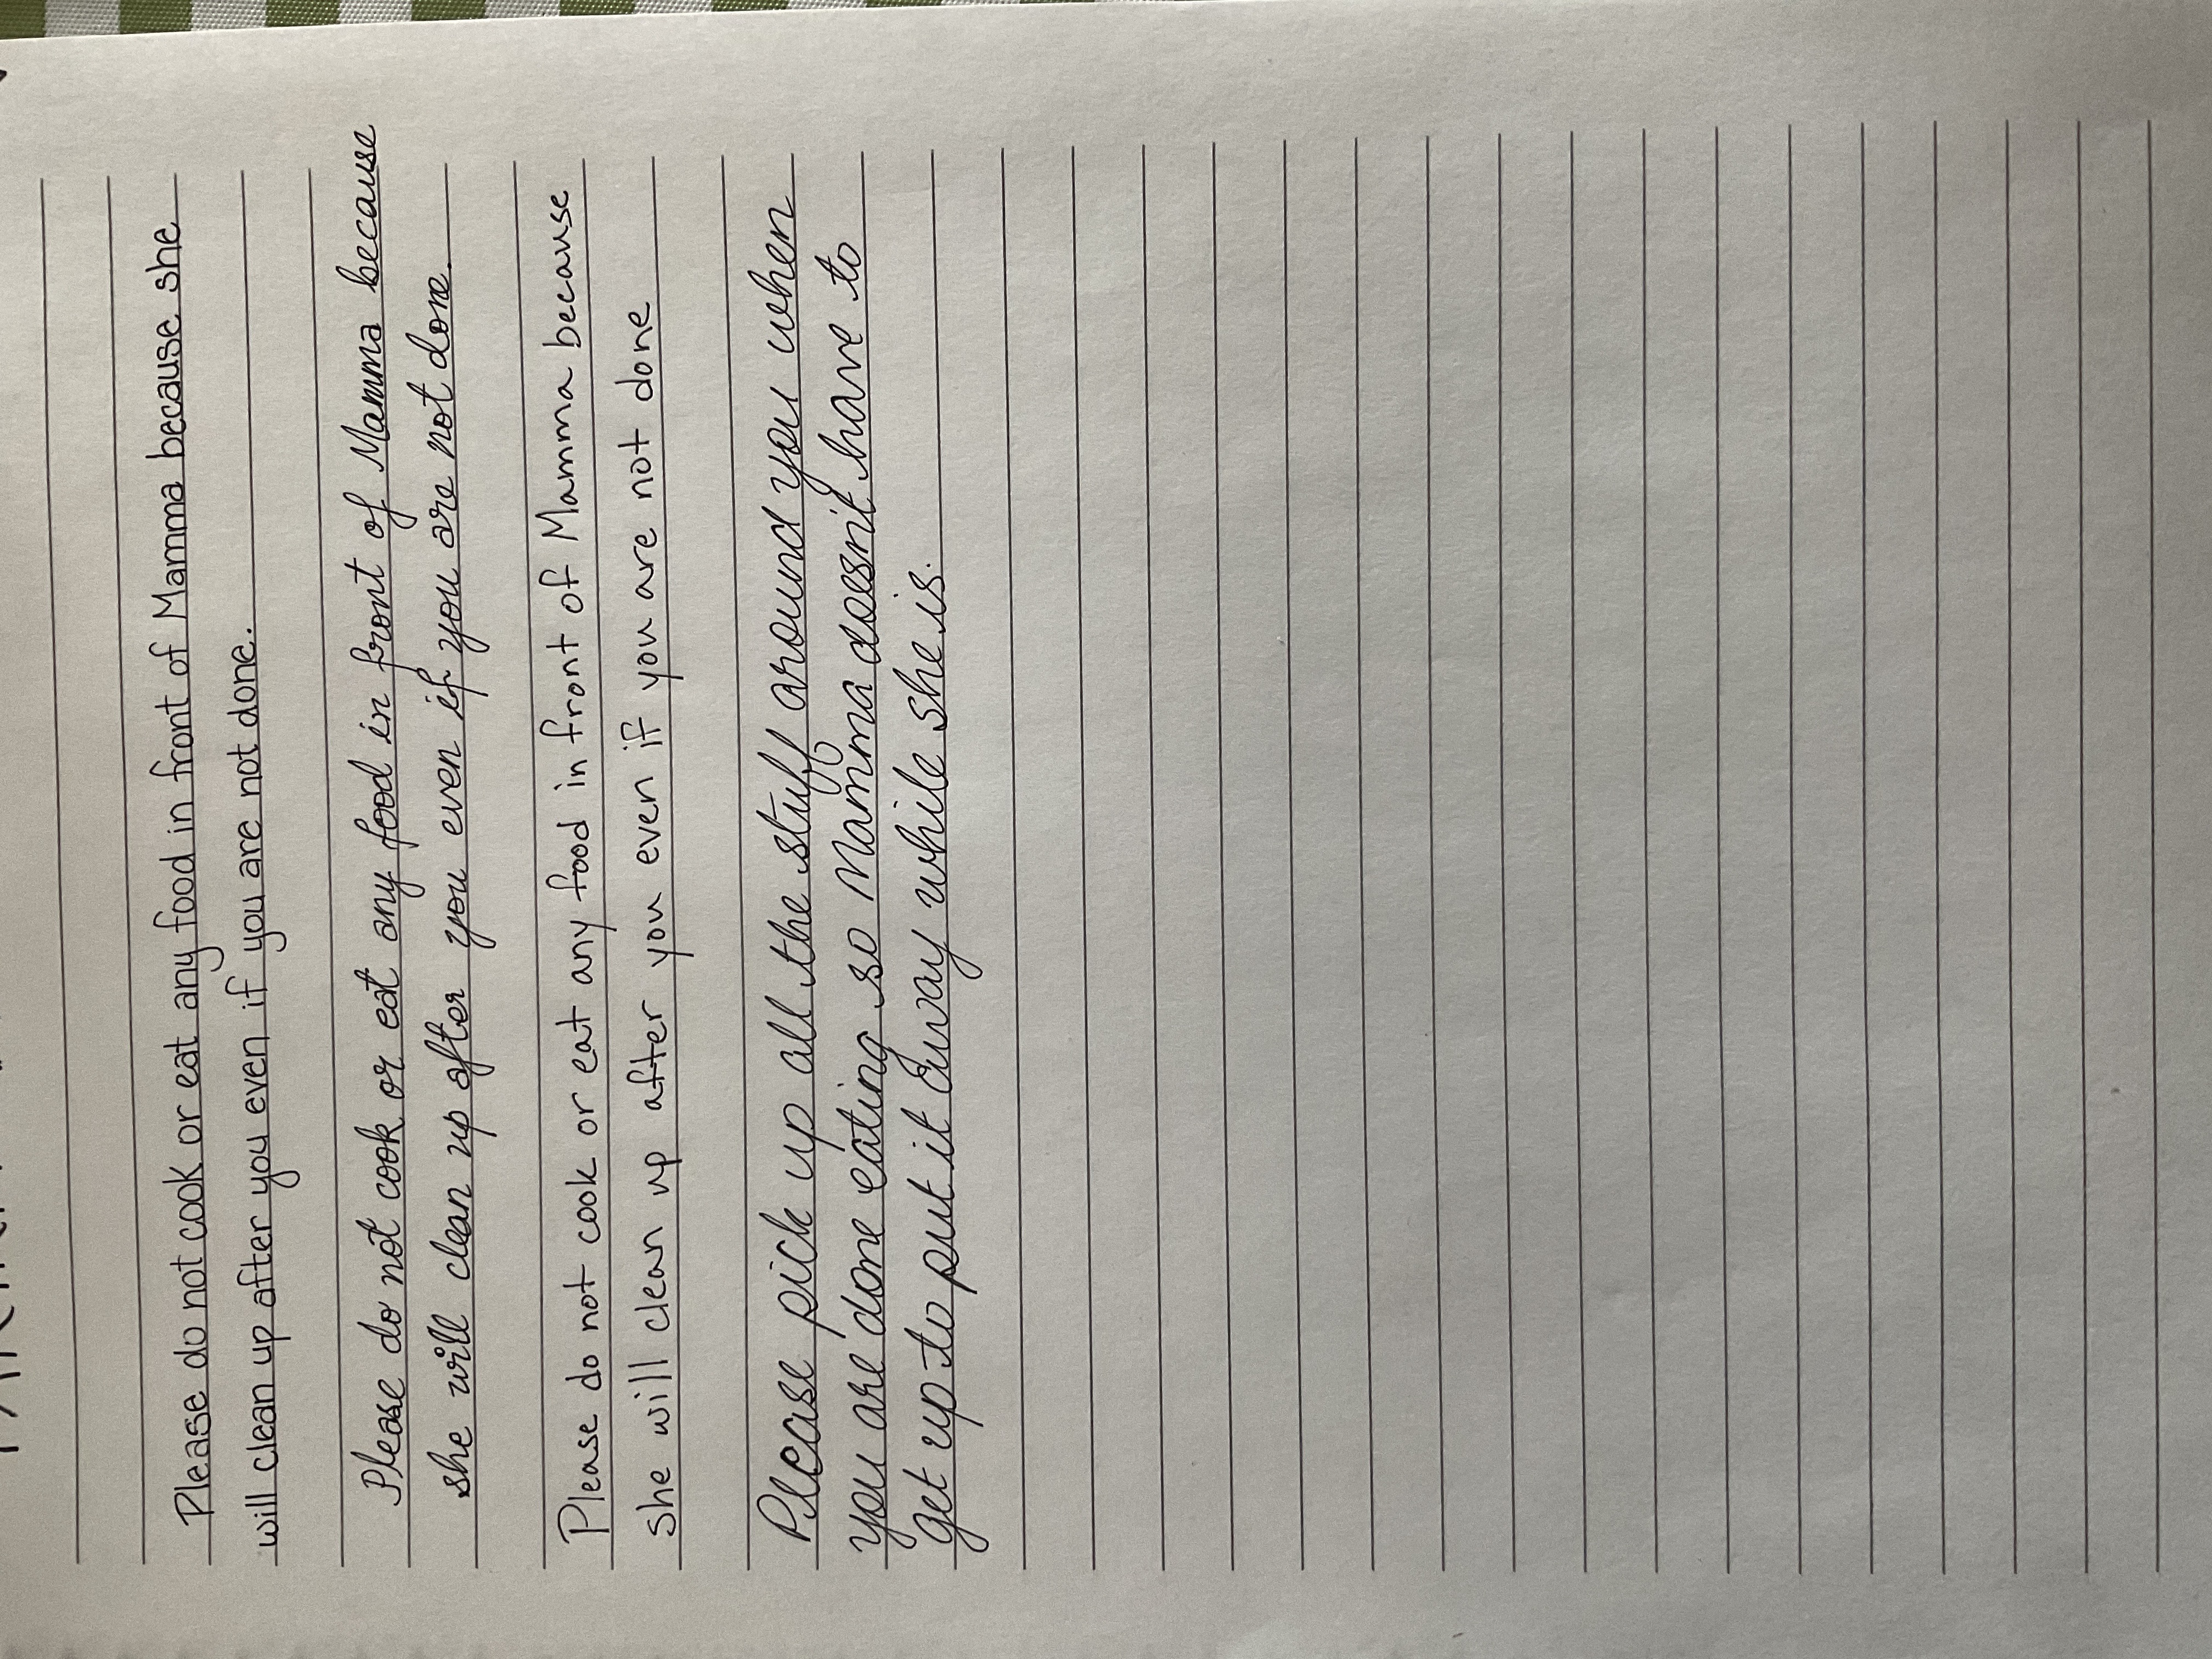 Please do not cook or eat any food in front of Mamma because she
will clean up after you even if you are not done.
Please do not cook or eat any food in front of Mamma because
she will clean up after you even if you are not done.
Please do not cook or eat any food in front of Mamma because
she will clean up after you even if you are not done
Please pick up all the stuff around you when
you are done eating so Mamma doesn't have to
get up to put it away while she is.